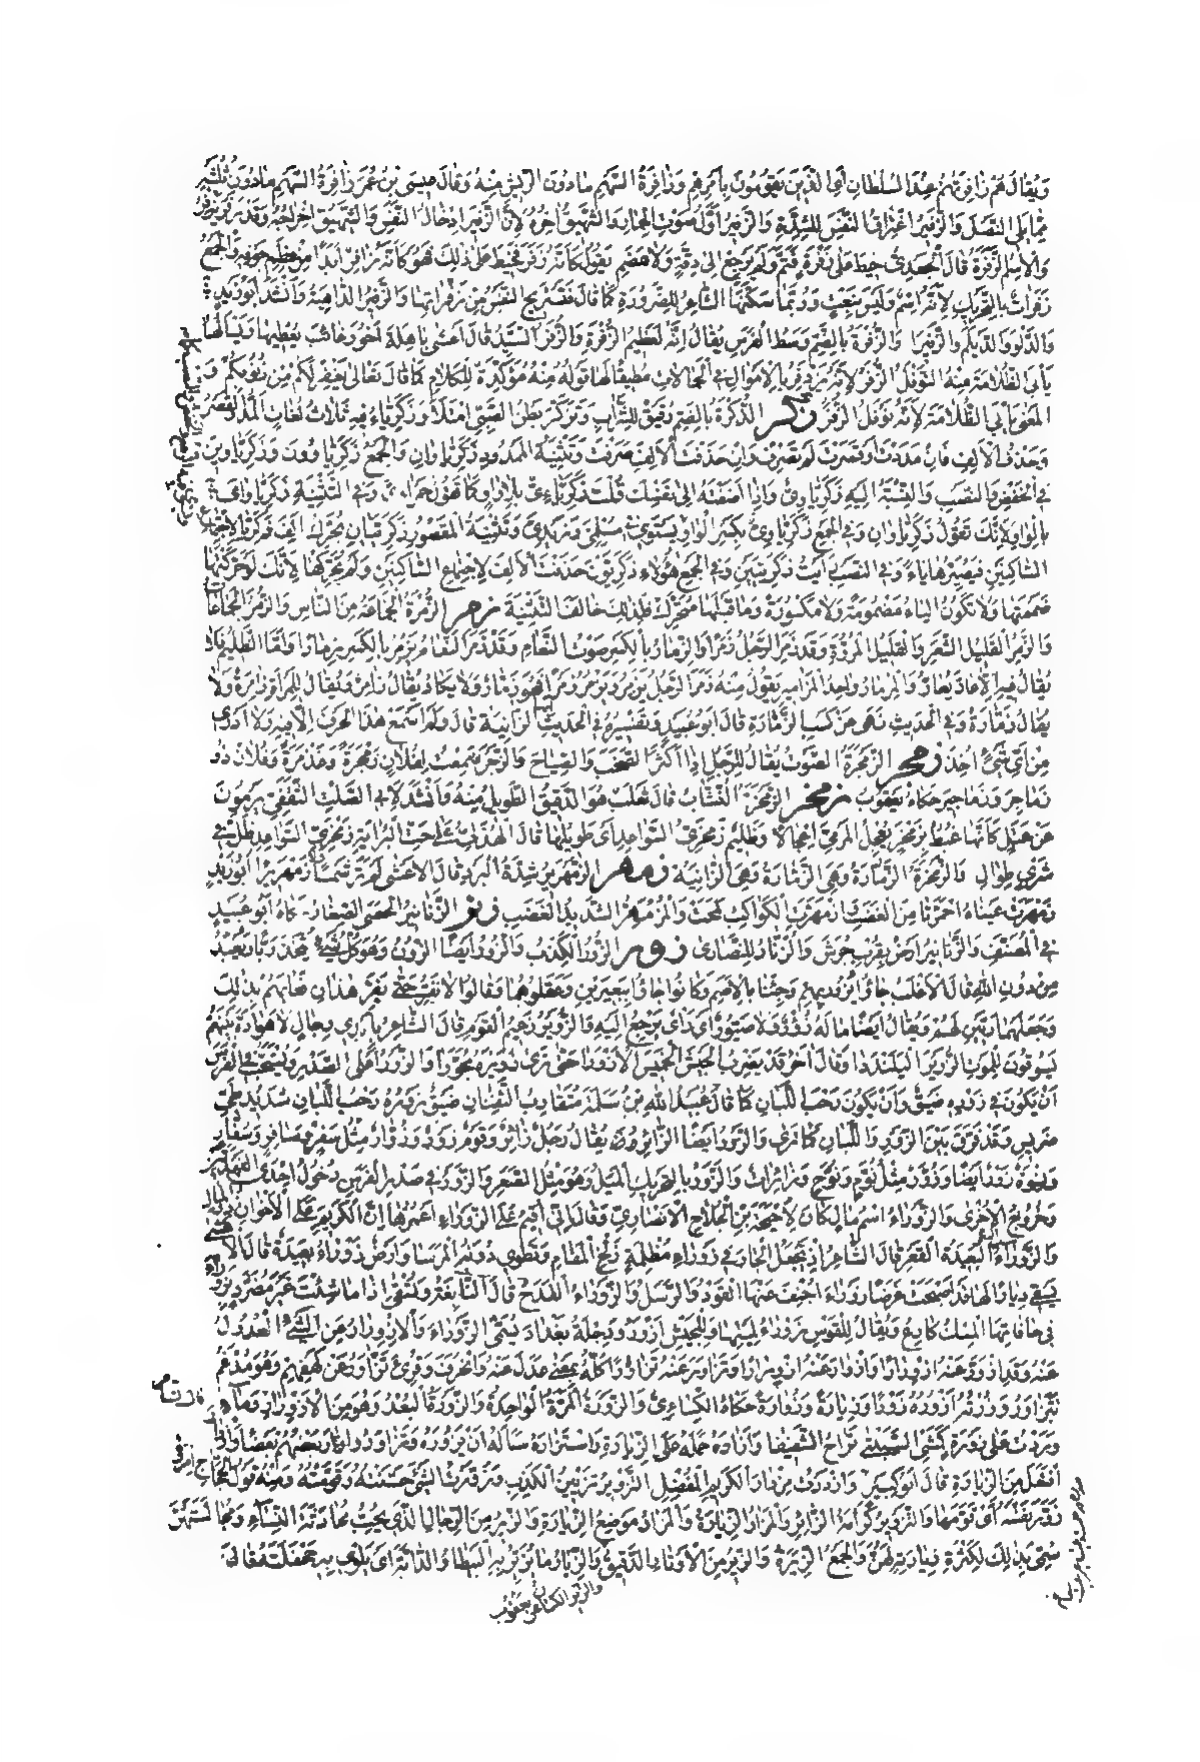 وَيُقَالُ هُمْ زَافِرَتُهُمْ عِنْدَ السُّلْطَانِ أَيِ الَّذِينَ يَقُومُونَ بِأَمْرِهِمْ وَزَافِرَةُ السَّهْمِ مَا دُونَ الرِّيشِ مِنْهُ وَقَالَ عِيسَى بْنُ عُمَرَ زَافِرَةُ السَّهْمِ مَا دُونَ ثُلُثَيْهِ
مِمَّا يَلِي النَّصْلَ وَالزَّفِيرُ اغْتِرَاقُ النَّفَسِ لِلشِّدَّةِ وَالزَّفِيرُ أَوَّلُ صَوْتِ الْحِمَارِ وَالشَّهِيقُ آخِرُهُ لِأَنَّ الزَّفِيرَ إِدْخَالُ النَّفَسِ وَالشَّهِيقَ إِخْرَاجُهُ وَقَدْ زَفَرَ يَزْفِرُ
وَالِاسْمُ الزَّفْرَةُ قَالَ الْجَعْدِيُّ خِيطَ عَلَى زَفْرَةٍ فَتَمَّ وَلَمْ يَرْجِعْ إِلَى دِقَّةٍ وَلَا هَضَمِ يَقُولُ كَأَنَّهُ زَفَرَ فَخِيطَ عَلَى ذَلِكَ فَهُوَ كَأَنَّهُ زَافِرٌ أَبَدًا مِنْ عِظَمِ جَوْفِهِ وَالْجَمْعُ
زَفَرَاتٌ بِالتَّحْرِيكِ لِأَنَّهُ اسْمٌ وَلَيْسَ بِنَعْتٍ وَرُبَّمَا سَكَّنَهَا الشَّاعِرُ لِلضَّرُورَةِ كَمَا قَالَ فَتَسْتَرِيحُ النَّفْسُ مِنْ زَفْرَاتِهَا وَالزَّفِيرُ الدَّاهِيَةُ وَأَنْشَدَ أَبُو زَيْدٍ
وَالدَّلْوَ وَالدَّيْلَمَ وَالزَّفِيرَا وَالزُّفْرَةُ بِالضَّمِّ وَسَطُ الْفَرَسِ يُقَالُ إِنَّهُ لَعَظِيمُ الزُّفْرَةِ وَالزُّفَرُ السَّيِّدُ قَالَ أَعْشَى بَاهِلَةَ أَخُو رَغَائِبَ يُعْطِيهَا وَيُسْأَلُهَا
يَأْبَى الظُّلَامَةَ مِنْهُ النَّوْفَلُ الزُّفَرُ لِأَنَّهُ يَزْدَفِرُ بِالْأَمْوَالِ فِي الْحَمَالَاتِ مُطِيقًا لَهَا قَوْلُهُ مِنْهُ مُؤَكِّدَةٌ لِلْكَلَامِ كَمَا قَالَ تَعَالَى يَغْفِرْ لَكُمْ مِنْ ذُنُوبِكُمْ
الْمَعْنَى يَأْبَى الظُّلَامَةَ لِأَنَّهُ النَّوْفَلُ الزُّفَرُ زكر الزُّكْرَةُ بِالضَّمِّ زُقَيْقٌ لِلشَّرَابِ وَتَزَكَّرَ بَطْنُ الصَّبِيِّ امْتَلَأَ وَزَكَرِيَّاءُ فِيهِ ثَلَاثُ لُغَاتٍ الْمَدُّ وَالْقَصْرُ
وَحَذْفُ الْأَلِفِ فَإِنْ مَدَدْتَ أَوْ قَصَرْتَ لَمْ تَصْرِفْ وَإِنْ حَذَفْتَ الْأَلِفَ صَرَفْتَ وَتَثْنِيَةُ الْمَمْدُودِ زَكَرِيَّاوَانِ وَالْجَمْعُ زَكَرِيَّاوُونَ وَزَكَرِيَّاوِينَ
فِي الْخَفْضِ وَالنَّصْبِ وَالنِّسْبَةُ إِلَيْهِ زَكَرِيَّاوِيٌّ وَإِذَا أَضَفْتَهُ إِلَى نَفْسِكَ قُلْتَ زَكَرِيَّائِيَّ بِلَا وَاوٍ كَمَا تَقُولُ حَمْرَائِي وَفِي التَّثْنِيَةِ زَكَرِيَّاوَايَ
بِالْوَاوِ لِأَنَّكَ تَقُولُ زَكَرِيَّاوَانِ وَفِي الْجَمْعِ زَكَرِيَّاوِيَّ بِكَسْرِ الْوَاوِ يَسْتَوِي فِيهِ وَتَثْنِيَةُ الْمَقْصُورِ زَكَرِيَّيَانِ تُحَرِّكُ أَلِفَ زَكَرِيَّا لِاجْتِمَاعِ
السَّاكِنَيْنِ فَيُصَيِّرُهَا يَاءً وَفِي النَّصْبِ رَأَيْتُ زَكَرِيَّيْنِ وَفِي الْجَمْعِ هَؤُلَاءِ زَكَرِيُّونَ حَذَفْتَ الْأَلِفَ لِاجْتِمَاعِ السَّاكِنَيْنِ وَلَمْ تُحَرِّكْهَا لِأَنَّكَ لَوْ حَرَّكْتَهَا
ضَمَمْتَهَا وَلَا تَكُونُ الْيَاءُ مَضْمُومَةً وَلَا مَكْسُورَةً وَمَا قَبْلَهَا مُتَحَرِّكٌ فَلِذَلِكَ خَالَفَ التَّثْنِيَةَ زمر الزُّمْرَةُ الْجَمَاعَةُ مِنَ النَّاسِ وَالزُّمَرُ الْجَمَاعَاتُ
وَالزَّمِرُ الْقَلِيلُ الشَّعَرِ وَالْقَلِيلُ الْمُرُوَّةِ وَقَدْ زَمِرَ الرَّجُلُ زَمَرًا وَالزِّمَارُ بِالْكَسْرِ صَوْتُ النَّعَامِ وَقَدْ زَمَرَ النَّعَامُ يَزْمِرُ بِالْكَسْرِ زِمَارًا وَأَمَّا الظَّلِيمُ فَلَا
يُقَالُ فِيهِ إِلَّا عَارَّ يُعَارُّ وَالْمِزْمَارُ وَاحِدُ الْمَزَامِيرِ يَقُولُ مِنْهُ زَمَرَ الرَّجُلُ يَزْمُرُ وَيَزْمِرُ زَمْرًا فَهُوَ زَمَّارٌ وَلَا يَكَادُ يُقَالُ زَامِرٌ وَيُقَالُ لِلْمَرْأَةِ زَامِرَةٌ وَلَا
يُقَالُ زَمَّارَةٌ وَفِي الْحَدِيثِ نَهَى عَنْ كَسْبِ الزَّمَّارَةِ قَالَ أَبُو عُبَيْدٍ وَتَفْسِيرُهُ فِي الْحَدِيثِ الزَّانِيَةُ قَالَ وَلَمْ أَسْمَعْ هَذَا الْحَرْفَ إِلَّا فِيهِ وَلَا أَدْرِي
مِنْ أَيِّ شَيْءٍ أُخِذَ زمجر الزَّمْجَرَةُ الصَّوْتُ يُقَالُ لِلرَّجُلِ إِذَا أَكْثَرَ الصَّخَبَ وَالصِّيَاحَ وَالزَّجْرَ سَمِعْتُ لِفُلَانٍ زَمْجَرَةً وَغَذْمَرَةً وَفُلَانٌ ذُو
زَمَاجِرَ وَزَمَاجِيرَ حَكَاهُ يَعْقُوبُ زمخر الزَّمْخَرُ النُّشَّابُ قَالَ ثَعْلَبٌ هُوَ الدَّقِيقُ الطَّوِيلُ مِنْهُ وَأَنْشَدَ لِأَبِي الصَّلْتِ الثَّقَفِيِّ يَرْمُونَ
عَنْ عَتَلٍ كَأَنَّهَا غُبُطٌ بِزَمْخَرٍ يُعْجِلُ الْمَرْمِيَّ إِعْجَالَا وَظَلِيمٌ زَمْخَرِيُّ السَّوَاعِدِ أَيْ طَوِيلُهَا قَالَ الْهُذَلِيُّ عَلَى حَتِّ الْبُرَايَةِ زَمْخَرِيِّ السَّوَاعِدِ ظَلَّ فِي
شَرْيٍ طِوَالِ وَالزَّمْخَرَةُ الزَّمَّارَةُ وَهِيَ الزَّمَّارَةُ وَهِيَ الزَّانِيَةُ زمهر الزَّمْهَرِيرُ شِدَّةُ الْبَرْدِ قَالَ الْأَعْشَى لَمْ تَرَ شَمْسًا وَلَا زَمْهَرِيرَا أَبُو زَيْدٍ
زَمْهَرَتْ عَيْنَاهُ احْمَرَّتَا مِنَ الْغَضَبِ ازْمَهَرَّتِ الْكَوَاكِبُ لَمَحَتْ وَالْمُزْمَهِرُّ الشَّدِيدُ الْغَضَبِ زنر الزَّنَانِيرُ الْحَصَى الصِّغَارُ حَكَاهُ أَبُو عُبَيْدٍ
فِي الْمُصَنَّفِ وَالزَّنَانِيرُ أَرْضٌ بِقُرْبِ جُرَشَ وَالزُّنَّارُ لِلنَّصَارَى زور الزُّورُ الْكَذِبُ وَالزُّورُ أَيْضًا الزُّونُ وَهُوَ كُلُّ شَيْءٍ يُتَّخَذُ رَبًّا وَيُعْبَدُ
مِنْ دُونِ اللَّهِ قَالَ الْأَغْلَبُ جَاؤُوا بِزُورَيْهِمْ وَجِئْنَا بِالْأَصَمّْ وَكَانُوا جَاؤُوا بِبَعِيرَيْنِ فَعَقَلُوهُمَا وَقَالُوا لَا نَفِرُّ حَتَّى يَفِرَّ هَذَانِ فَعَابَهُمْ بِذَلِكَ
وَجَعَلَهُمَا رَبَّيْنِ لَهُمْ وَيُقَالُ أَيْضًا مَا لَهُ زُورٌ وَلَا صَيُّورٌ أَيْ رَأْيٌ يَرْجِعُ إِلَيْهِ وَالزُّوَيْرُ زَعِيمُ الْقَوْمِ قَالَ الشَّاعِرُ بِأَيْدِي رِجَالٍ لَا هَوَادَةَ بَيْنَهُمْ
يَسُوقُونَ لِلْمَوْتِ الزُّوَيْرَ الْيَلَنْدَدَا وَقَالَ آخَرُ قَدْ نَضْرِبُ الْجَيْشَ الْخَمِيسَ الْأَزْوَرَا حَتَّى تَرَى زُوَيْرَهُ مُجَوَّرَا وَالزَّوْرُ أَعْلَى الصَّدْرِ وَيُسْتَحَبُّ فِي الْفَرَسِ
أَنْ يَكُونَ فِي زَوْرِهِ ضِيقٌ وَأَنْ يَكُونَ رَحْبَ اللَّبَانِ كَمَا قَالَ عَبْدُ اللَّهِ بْنُ سَلِمَةَ مُتَقَارِبِ الثَّفِنَاتِ ضَيْقٍ زَوْرُهُ رَحْبِ اللَّبَانِ شَدِيدِ طَيِّ
ضَرِيسِ وَقَدْ فَرَقَ بَيْنَ الزَّوْرِ وَاللَّبَانِ كَمَا تَرَى وَالزَّوْرُ أَيْضًا الزَّائِرُونَ يُقَالُ رَجُلٌ زَائِرٌ وَقَوْمٌ زَوْرٌ وَزُوَّارٌ مِثْلُ سَفْرٍ وَسُفَّارٍ
وَنِسْوَةٌ زَوْرٌ أَيْضًا وَزُوَّرٌ مِثْلُ نُوَّمٍ وَنُوَّحٍ وَزَائِرَاتٌ وَالزَّوَرُ بِالتَّحْرِيكِ الْمَيَلُ وَهُوَ مِثْلُ الصَّعَرِ وَالزَّوَرُ فِي صَدْرِ الْفَرَسِ دُخُولُ إِحْدَى الْفَهْدَتَيْنِ
وَخُرُوجُ الْأُخْرَى وَالزَّوْرَاءُ اسْمُ مَالٍ كَانَ لِأُحَيْحَةَ بْنِ الْجُلَاحِ الْأَنْصَارِيِّ وَقَالَ إِنِّي أُقِيمُ عَلَى الزَّوْرَاءِ أَعْمُرُهَا إِنَّ الْكَرِيمَ عَلَى الْإِخْوَانِ ذُو الْمَالِ
وَالزَّوْرَاءُ الْبَعِيدَةُ الْقَعْرِ قَالَ الشَّاعِرُ إِذْ تَجْعَلُ الْجَارَ فِي زَوْرَاءَ مُظْلِمَةٍ زَلْخِ الْمَقَامِ وَتَطْوِي دُونَهُ الْمَرَسَا وَأَرْضٌ زَوْرَاءُ بَعِيدَةٌ قَالَ الْأَعْشَى
يَسْقِي دِيَارًا لَهَا قَدْ أَصْبَحَتْ غَرَضًا زَوْرَاءَ أَجْنَفَ عَنْهَا الْقَوْدُ وَالرَّسَلُ وَالزَّوْرَاءُ الْقَدَحُ قَالَ النَّابِغَةُ وَتُسْقَى إِذَا مَا شِئْتَ غَيْرَ مُصَرَّدٍ بِزَوْرَاءَ
فِي حَافَاتِهَا الْمِسْكُ كَانِعُ وَيُقَالُ لِلْقَوْسِ زَوْرَاءُ لِمَيْلِهَا وَلِلْجَيْشِ أَزْوَرُ وَدِجْلَةُ بَغْدَادَ تُسَمَّى الزَّوْرَاءَ وَالِازْوِرَارُ عَنِ الشَّيْءِ الْعُدُولُ
عَنْهُ وَقَدِ ازْوَرَّ عَنْهُ ازْوِرَارًا وَازْوَارَّ عَنْهُ ازْوِيرَارًا وَتَزَاوَرَ عَنْهُ تَزَاوُرًا كُلُّهُ بِمَعْنَى عَدَلَ عَنْهُ وَانْحَرَفَ وَقُرِئَ تَزَّاوَرُ عَنْ كَهْفِهِمْ وَهُوَ مُدْغَمُ
تَتَزَاوَرُ وَزُرْتُهُ أَزُورُهُ زَوْرًا وَزِيَارَةً وَزُوَارَةً حَكَاهُ الْكِسَائِيُّ وَالزَّوْرَةُ الْمَرَّةُ الْوَاحِدَةُ وَالزَّوْرَةُ الْبُعْدُ وَهُوَ مِنَ الِازْوِرَارِ وَمَاءٍ
وَرَدْتُ عَلَى زَوْرَةٍ كَمَشْيِ السَّبَنْتَى يَرَاحُ الشَّفِيفَا وَأَزَارَهُ حَمَلَهُ عَلَى الزِّيَارَةِ وَاسْتَزَارَهُ سَأَلَهُ أَنْ يَزُورَهُ وَتَزَاوَرُوا زَارَ بَعْضُهُمْ بَعْضًا وَازْدَارَ
افْتَعَلَ مِنَ الزِّيَارَةِ قَالَ أَبُو كَبِيرٍ وَازْدَرْتُ مُزْدَارَ الْكَرِيمِ الْمِفْضَلِ التَّزْوِيرُ تَزْيِينُ الْكَذِبِ وَزَوَّرْتُ الشَّيْءَ حَسَّنْتُهُ وَقَوَّمْتُهُ وَمِنْهُ قَوْلُ الْحَجَّاجِ امْرُؤٌ
زَوَّرَ نَفْسَهُ أَيْ قَوَّمَهَا وَالتَّزْوِيرُ كَرَامَةُ الزَّائِرِ وَالْمَزَارُ الزِّيَارَةُ وَالْمَزَارُ مَوْضِعُ الزِّيَارَةِ وَالزِّيرُ مِنَ الرِّجَالِ الَّذِي يُحِبُّ مُحَادَثَةَ النِّسَاءِ وَمُجَالَسَتَهُنَّ
سُمِّيَ بِذَلِكَ لِكَثْرَةِ زِيَارَتِهِ لَهُنَّ وَالْجَمْعُ الزِّيَرَةُ وَالزِّيرُ مِنَ الْأَوْتَارِ الدَّقِيقُ وَالزِّيَارُ مَا يُزَيِّرُ بِهِ الْبَيْطَارُ الدَّابَّةَ أَيْ يَلْوِي بِهِ جَحْفَلَتَهُ